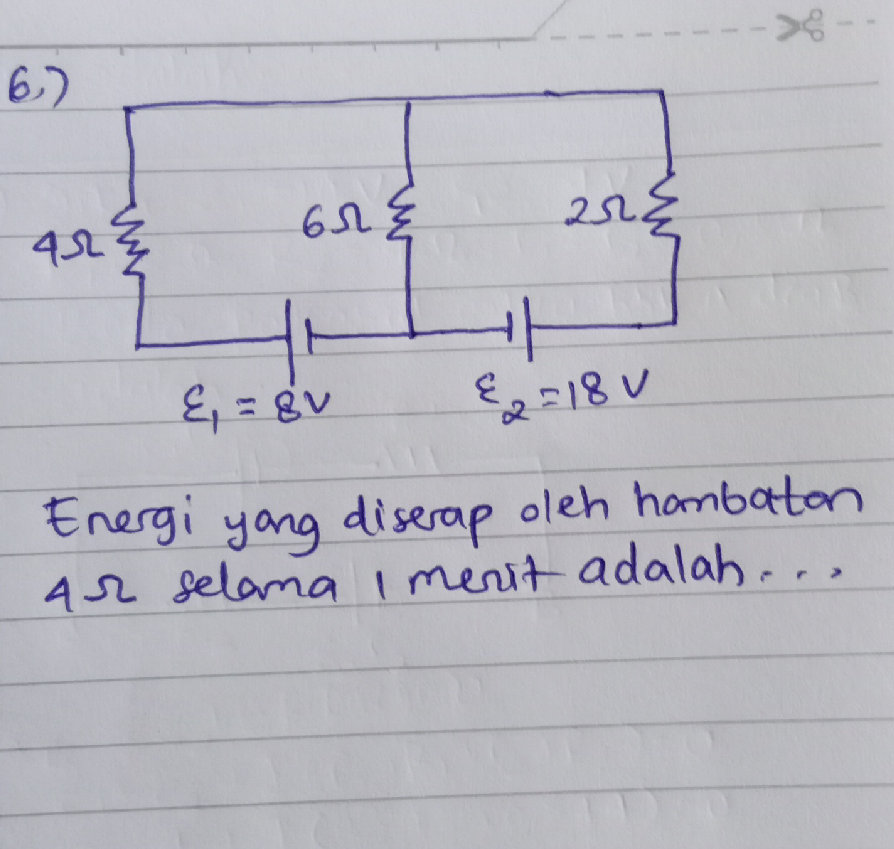 6.)
4Ω 6Ω 2Ω
ε₁ = 8V ε₂ = 18 V
Energi yang diserap oleh hambatan
4Ω selama 1 menit adalah...